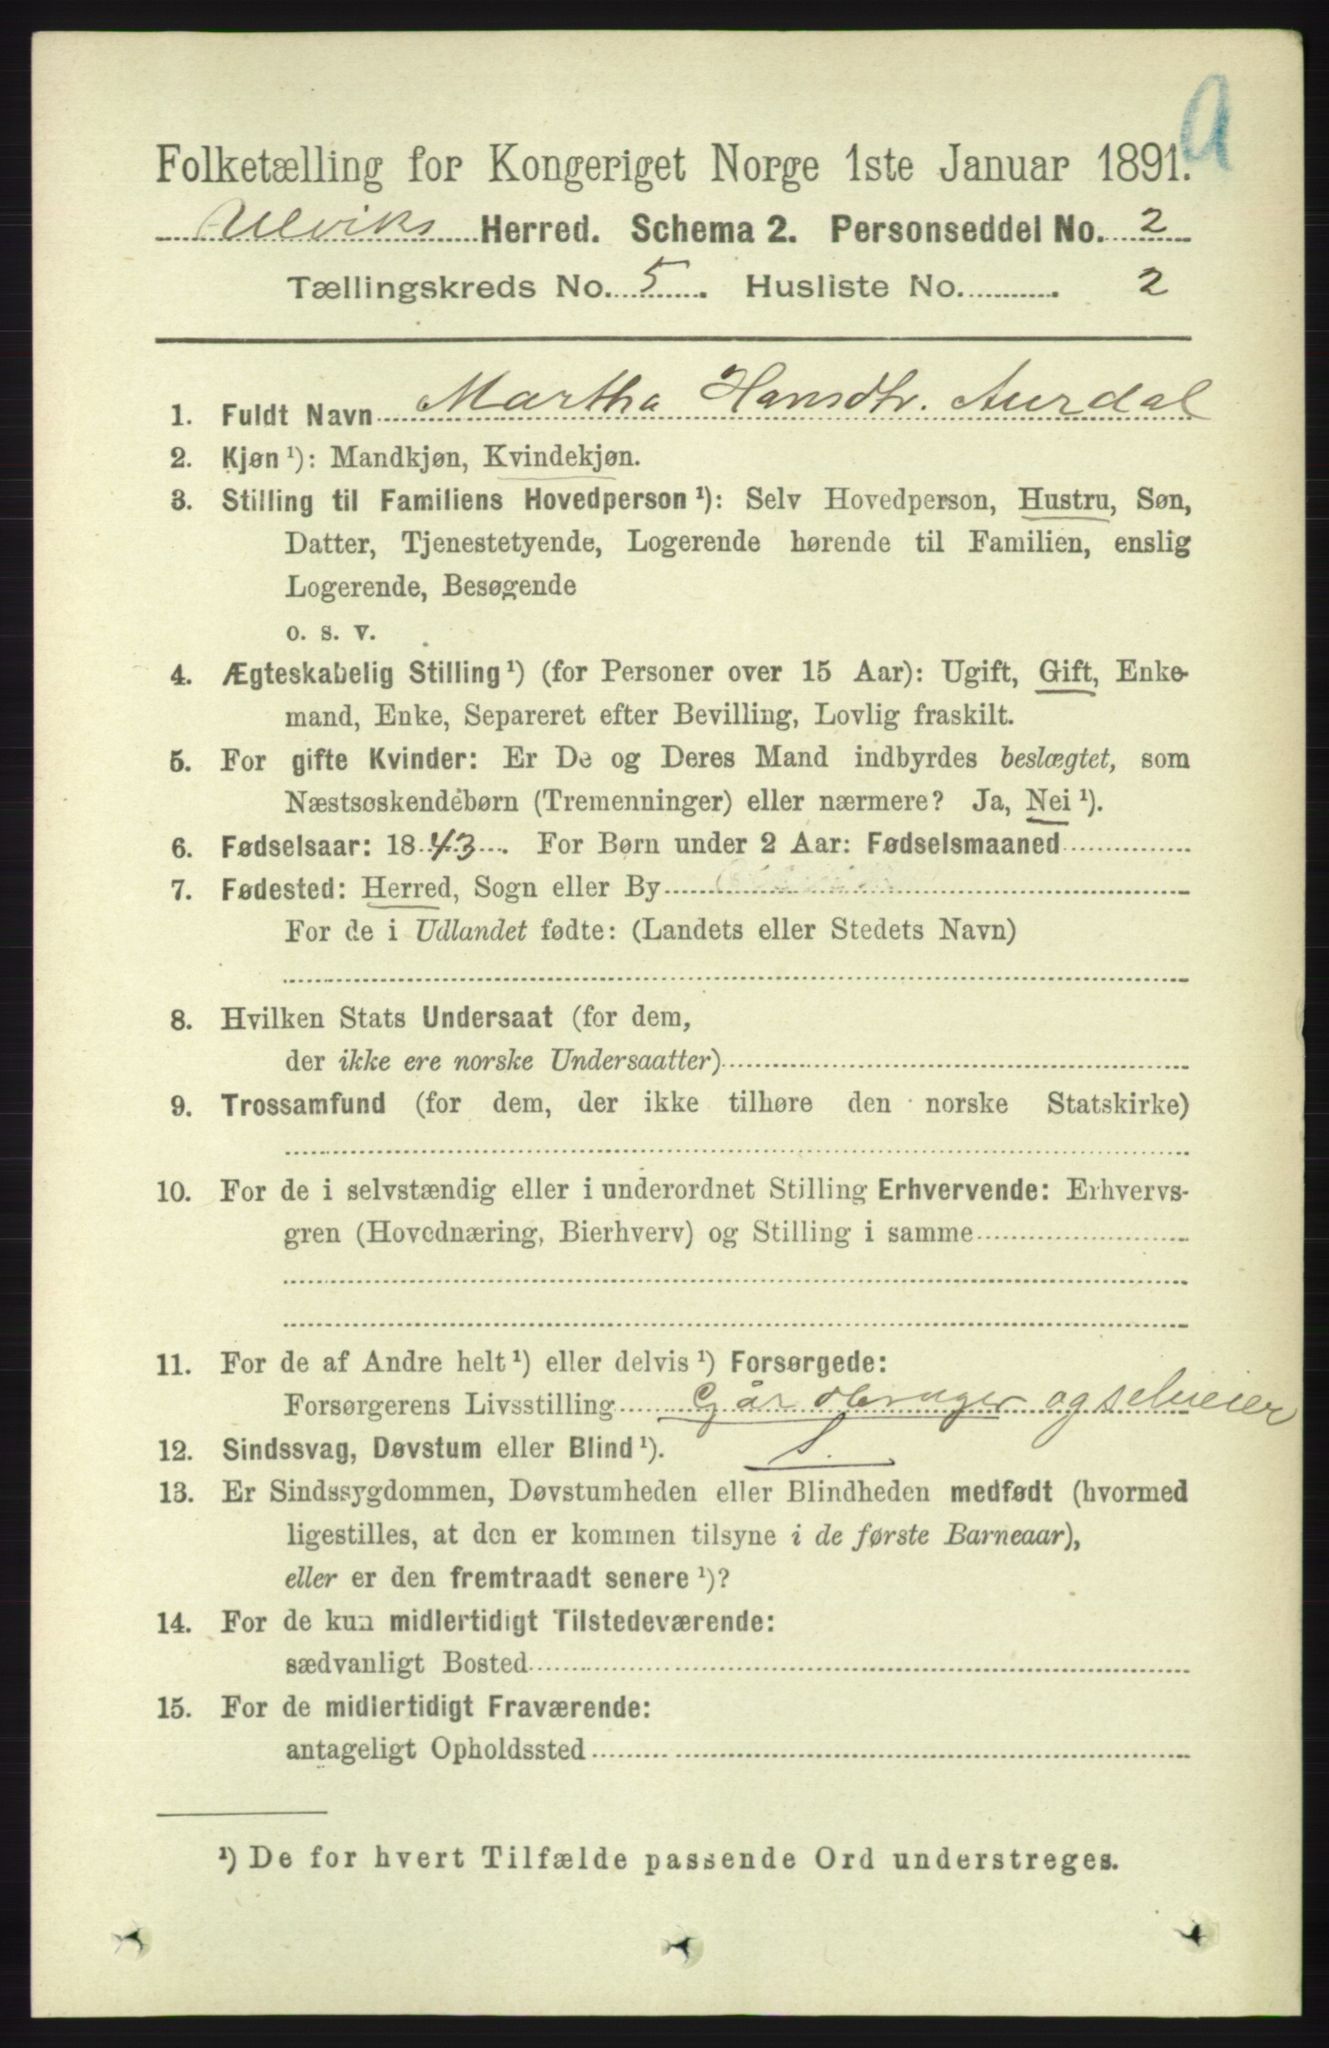 Folketælling for Kongeriget Norge 1ste Januar 1891.
Ulviks Herred. Schema 2. Personseddel No. 2
Tællingskreds No. 5. Husliste No. 2
1. Fuldt Navn Martha Hansdtr. Aurdal
2. Kjøn¹): Mandkjøn, Kvindekjøn.
3. Stilling til Familiens Hovedperson¹): Selv Hovedperson, Hustru, Søn,
Datter, Tjenestetyende, Logerende hørende til Familien, enslig
Logerende, Besøgende
o. s. v.
4. Ægteskabelig Stilling¹) (for Personer over 15 Aar): Ugift, Gift, Enke-
mand, Enke, Separeret efter Bevilling, Lovlig fraskilt.
5. For gifte Kvinder: Er De og Deres Mand indbyrdes beslægtet, som
Næstsøskendebørn (Tremenninger) eller nærmere? Ja, Nei¹).
6. Fødselsaar: 1843. For Børn under 2 Aar: Fødselsmaaned
7. Fødested: Herred, Sogn eller By
For de i Udlandet fødte: (Landets eller Stedets Navn)
8. Hvilken Stats Undersaat (for dem,
der ikke ere norske Undersaatter)
9. Trossamfund (for dem, der ikke tilhøre den norske Statskirke)
10. For de i selvstændig eller i underordnet Stilling Erhvervende: Erhvervs-
gren (Hovednæring, Bierhverv) og Stilling i samme
11. For de af Andre helt¹) eller delvis¹) Forsørgede:
Forsørgerens Livsstilling Gårdbruger og selveier
12. Sindssvag, Døvstum eller Blind¹). S.
13. Er Sindssygdommen, Døvstumheden eller Blindheden medfødt (hvormed
ligestilles, at den er kommen tilsyne i de første Barneaar),
eller er den fremtraadt senere¹)?
14. For de kun midlertidigt Tilstedeværende:
sædvanligt Bosted
15. For de midlertidigt Fraværende:
antageligt Opholdssted
¹) De for hvert Tilfælde passende Ord understreges.